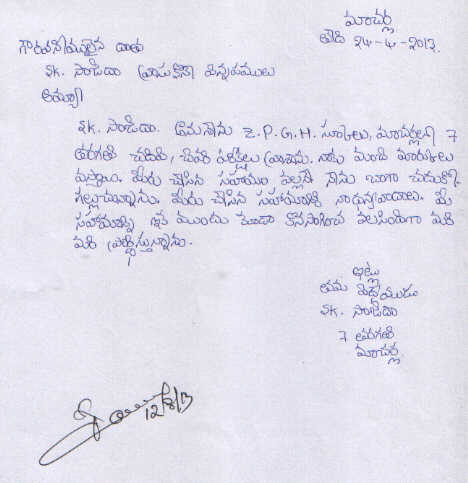 మాచర్ల
తేది 24-4-2013.
గౌరవనీయులైన దాత
sk. సాజిదా వ్రాయునది విన్నపములు
అయ్యా
sk. సాజిదా అను నేను Z.P.G.H. స్కూలు, మాచర్లలో 7
తరగతి చదివి, చివరి పరీక్షలు వ్రాశాను. నాకు మంచి మార్కులు
వస్తాయి. మీరు చేసిన సహాయం వల్లనే నేను బాగా చదువుకో
గల్గుచున్నాను. మీరు చేసిన సహాయానికి నా ధన్యవాదాలు. మీ
సహాయాన్ని ఇక ముందు కూడా కొనసాగించ వలసిందిగా మరీ
మరీ ప్రార్థిస్తున్నాను.
ఇట్లు
తమ విధేయుడు
sk. సాజిదా
7 తరగతి
మాచర్ల.
12/8/13